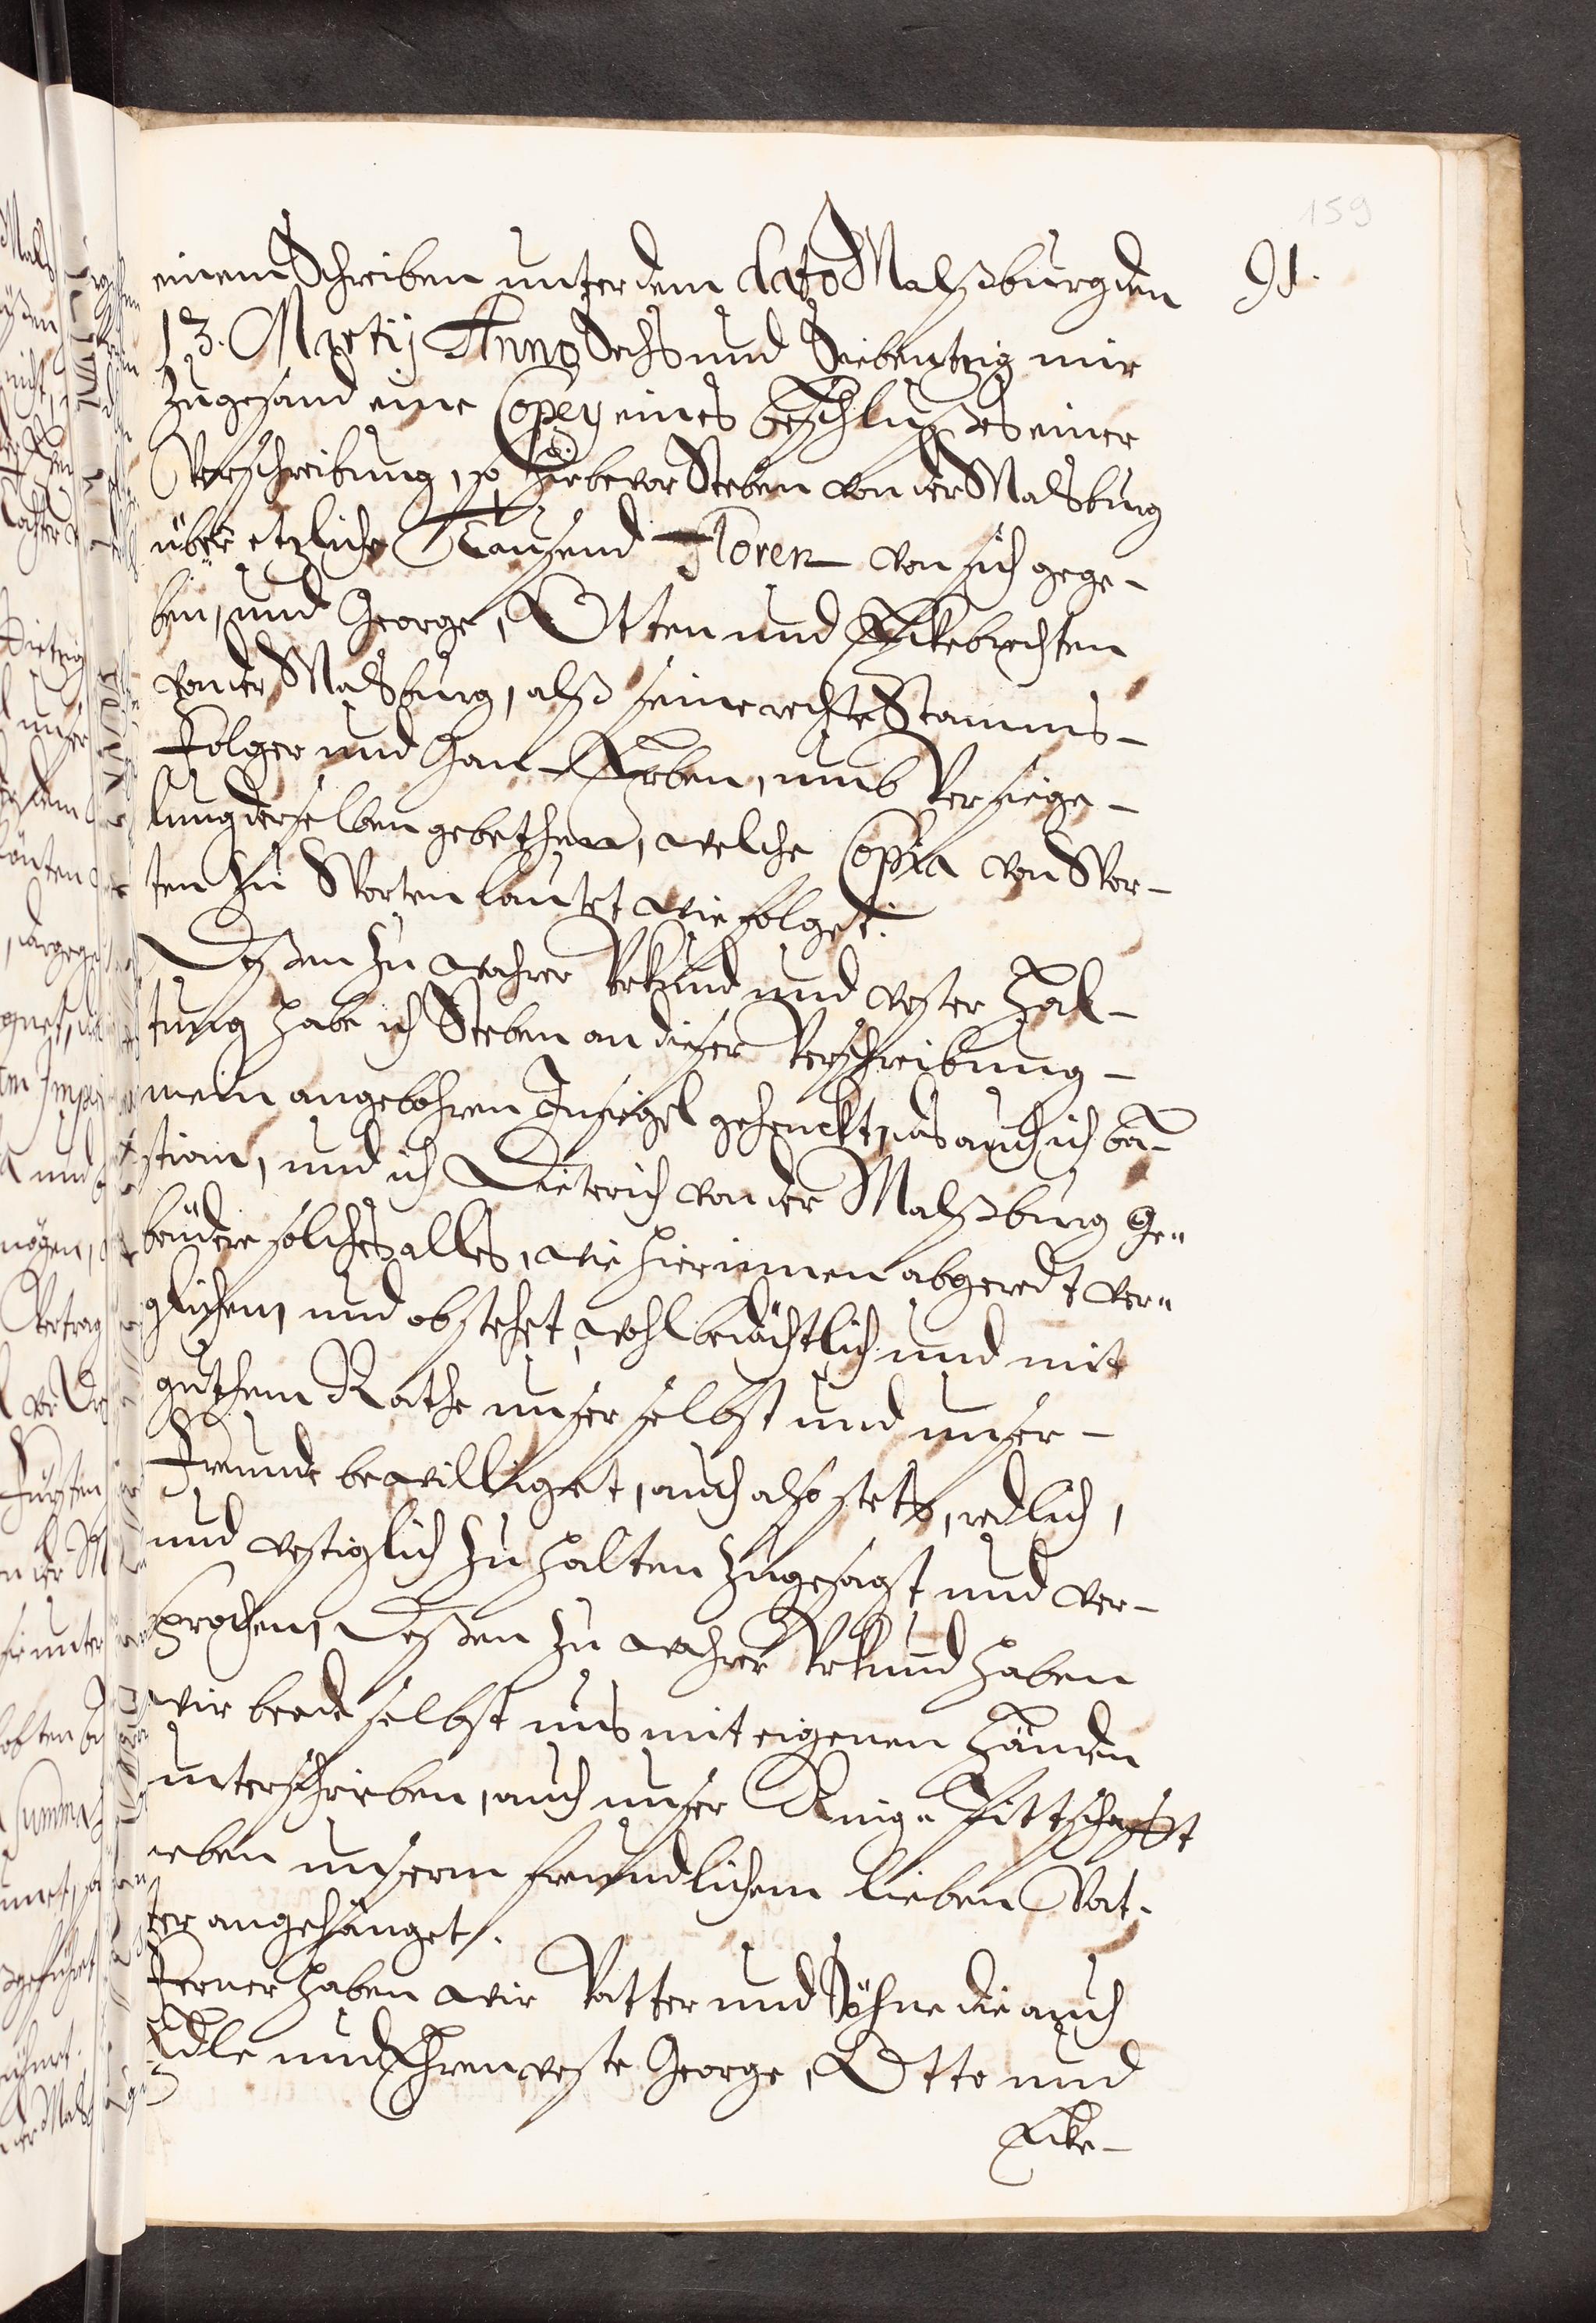 159
91.
einem Schreiben unter dem dato Malßburg den
13. Martij Anno Sechs und Siebentzig mir
zugesand eine Copey eines beschlußes einer
Verschreibung, so hiebevor Steben von der Malsburg
über etzliche Tausend Floren von sich gege-
ben, und George, Otten und Eckebrechten
von der Malsburg, alß seine rechte Stamms-
Folger und Gan-Erben, umb Versiege-
lung derselben gebethen, welche Copia von Wor-
ten zu Worten lautet wie folget:
Deßen zu wahrer Urkund und vester Hal-
tung habe ich Steben an dieser Verschreibung-
mein angebohren Insiegel gehenckt, das auch ich Ba-
stian, und ich Dieterich von der Malßburg Ge-
brüdere solches alles, wie hierinnen abgeredt ver-
glichen, und obstehet, wohlbedächtlich und mit
guthem Rathe unser selbst und unser-
Freunde bewilliget, auch also stets, redlich,
und vestiglich zu halten zugesagt und ver-
sprochen, Deßen zu wahrer Urkund haben
wir beede selbst uns mit eigenen Händen
unterschrieben, auch unser Ring-Pittschafft
neben unserm freundlichem lieben Vat-
ter angehänget.
Ferner haben wir Vatter und Söhne die auch
Edle und Ehrenveste George, Otto und
Ecke-